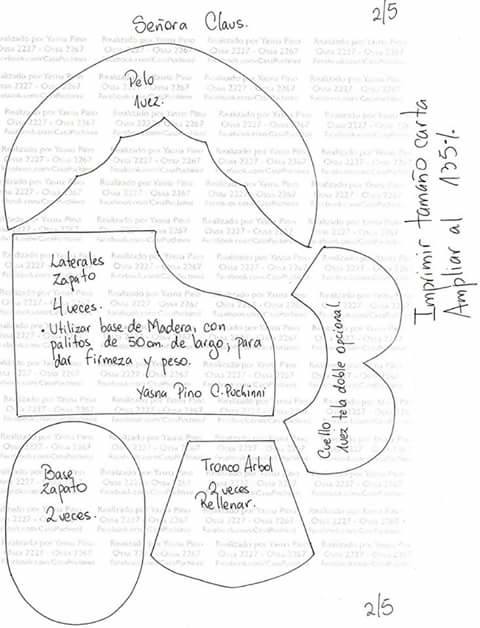 Señora Claus.
2/5
Pelo
1vez.
Imprimir tamaño carta
Ampliar al 135%.
Laterales
Zapato
4 veces.
• Utilizar base de Madera, con
palitos de 50cm. de largo, para
dar firmeza y peso.
Yasna Pino C. Pochinni
Cuello
1vez tela doble opcional.
Base
Zapato
2 veces.
Tronco Arbol
2 veces
Rellenar.
2/5
Realizado por Yasna Pino
Ossa 2227 - Ossa 2267